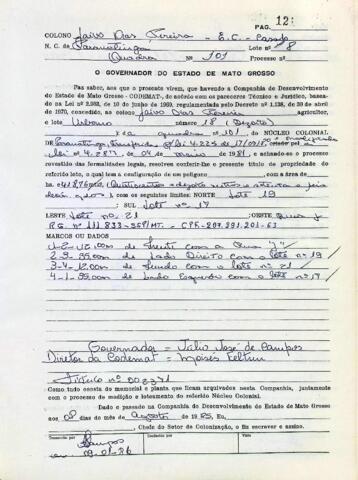 PAG. 12
COLONO Jairo Dias Pereira - E.C. - Casado
N. C. de Paranatinga Lote nº 18
Quadra nº 101 Processo nº
O GOVERNADOR DO ESTADO DE MATO GROSSO
Faz saber, aos que o presente virem, que havendo a Companhia de Desenvolvimento
do Estado de Mato Grosso - CODEMAT-, de acôrdo com os pareceres Técnico e Jurídico, basea-
do na Lei nº 2.983, de 10 de junho de 1969, regulamentada pelo Decreto nº 1.138, de 30 de abril
de 1970, concedido, ao colono Jairo Dias Pereira agricultor,
e lote Urbano número 18 (Dezoito)
da quadra nº 101 NÚCLEO COLONIAL
DE Paranatinga
lei nº 4.287, de 04 de 1981 e achando-se o processo
revestido das formalidades legais, resolveu conferir o presente título de propriedade do
referido lote, o qual tem a configuração de um poligono com a área de
ha com os seguintes limites: NORTE Lote 19
SUL lote nº 17
LESTE lote nº 21 OESTE Rua J
R.G. nº 111.833-SSP/MT. - CPF-207.391.201-63
MARCOS OU DADOS
1-2-12,00m de frente com a Rua "J"
2-3- de Lado Direito com o lote nº 19
3-4-12,00m de fundo com o lote nº 21
4-1- de Lado Esquerdo com o lote nº 17
Governador = Júlio José de Campos
Diretor da Codemat = Moisés Feltrin
Título nº 002271
Como tudo consta do memorial e planta que ficam arquivados nesta Companhia, juntamente
com o processo de medição e loteamento do referido Núcleo Colonial.
Dado e passado na Companhia do Desenvolvimento do Estado de Mato Grosso
aos 08 dias do mês de agosto de 1985, Eu,
, Chefe do Setor de Colonização, o fiz escrever e assino.
Transcrito por
Campos
em 09-01-86